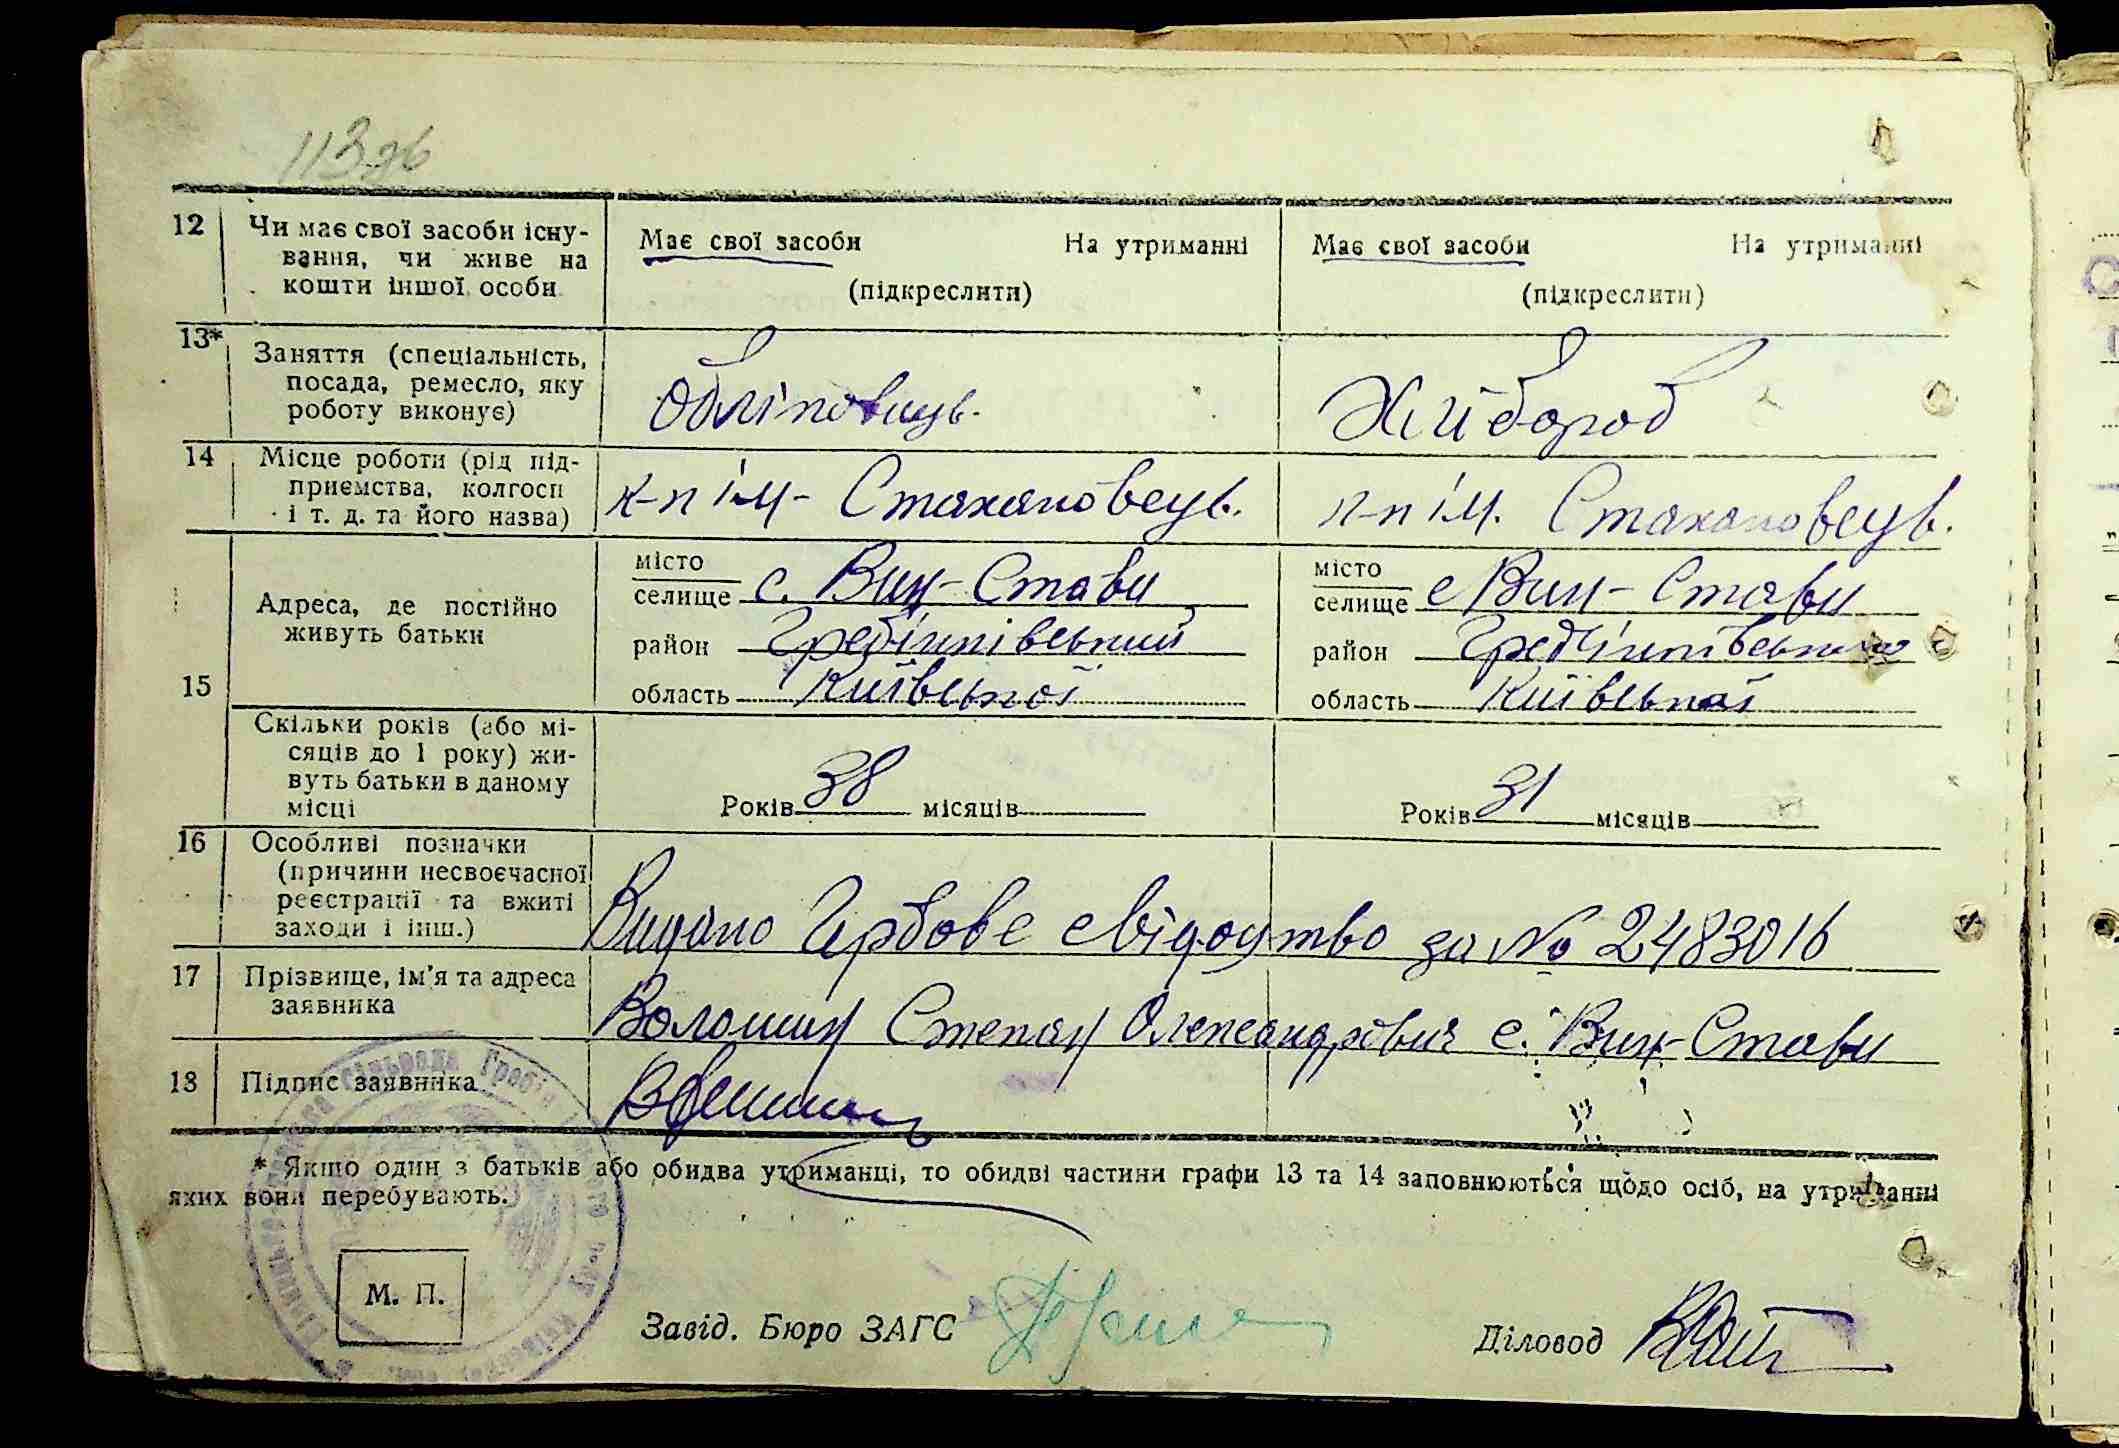 113 зв
12 Чи має свої засоби існу-
вання, чи живе на
кошти іншої особи
Має свої засоби На утриманні
(підкреслити)
Має свої засоби На утриманні
(підкреслити)
13* Заняття (спеціальність,
посада, ремесло, яку
роботу виконує)
Обліповець.
Хлібороб
14 Місце роботи (рід під-
приємства, колгосп
і т. д. та його назва)
к-п ім- Стахановець.
к-п ім. Стахановець.
15 Адреса, де постійно
живуть батьки
місто
селище с. Вин-Стави
район Гребінківський
область Київської
місто
селище с Вин-Стави
район Гребінківський
область Київської
Скільки років (або мі-
сяців до 1 року) жи-
вуть батьки в даному
місці
Років 38 місяців
Років 31 місяців
16 Особливі позначки
(причини несвоєчасної
реєстрації та вжиті
заходи і інш.)
Видано Гербове свідоцтво за № 2483016
17 Прізвище, ім'я та адреса
заявника
Волошин Степан Олександрович с. Вин-Стави
18 Підпис заявника
* Якщо один з батьків або обидва утриманці, то обидві частини графи 13 та 14 заповнюються щодо осіб, на утриманні
яких вони перебувають.
М. П.
Завід. Бюро ЗАГС
Діловод